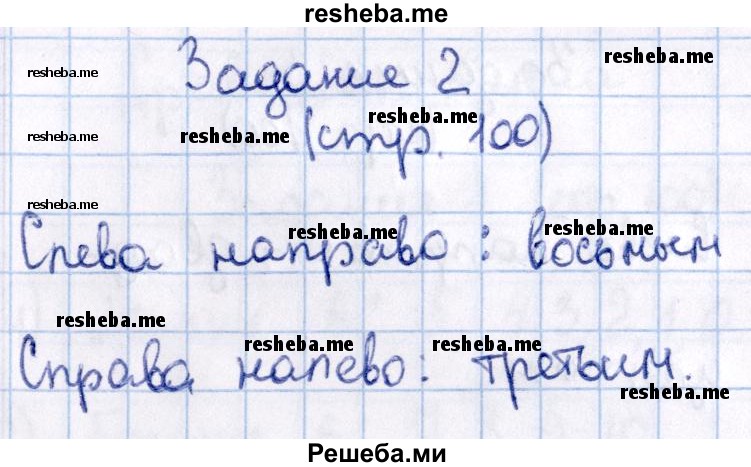 resheba.me
Задание 2
resheba.me
resheba.me
resheba.me
resheba.me
resheba.me
(стр. 100)
resheba.me
resheba.me
resheba.me
Слева направо: восьмым
resheba.me
resheba.me
resheba.me
Справа налево: третьим.
resheba.me
Решеба.ми